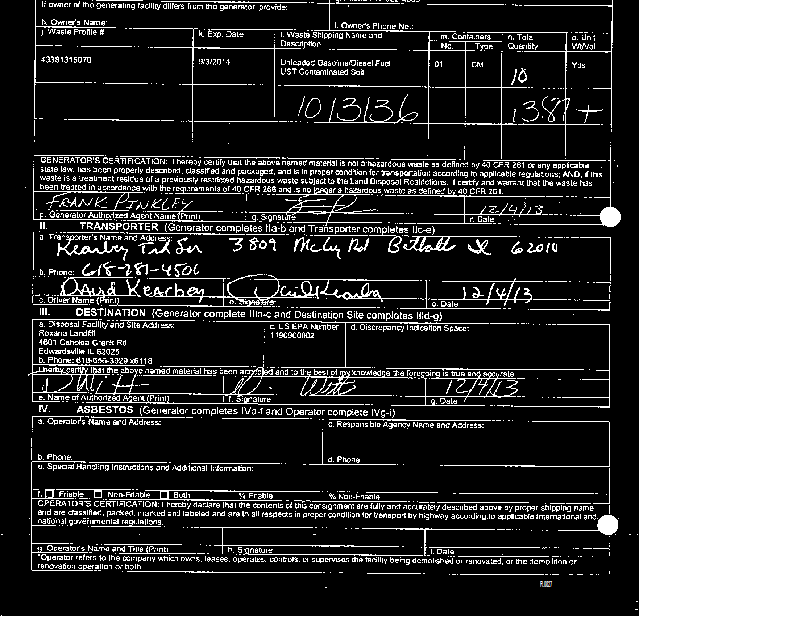 If owner of the generating facility differs from the generator provide:
h. Owner's Name: i. Owner's Phone No.:
j. Waste Profile # k. Exp. Date l. Waste Shipping Name and Description m. Containers No. Type n. Total Quantity o. Unit Wt/Vol
43381315070 9/3/2014 Unleaded Gasoline/Diesel Fuel UST Contaminated Soil 01 CM 10 Yds
1013136 13.87 T
GENERATOR'S CERTIFICATION: I hereby certify that the above named material is not a hazardous waste as defined by 40 CFR 261 or any applicable
state law, has been properly described, classified and packaged, and is in proper condition for transportation according to applicable regulations; AND, if this
waste is a treatment residue of a previously restricted hazardous waste subject to the Land Disposal Restrictions, I certify and warrant that the waste has
been treated in accordance with the requirements of 40 CFR 268 and is no longer a hazardous waste as defined by 40 CFR 261.
FRANK PINKLEY 12/4/13
p. Generator Authorized Agent Name (Print) q. Signature r. Date
II. TRANSPORTER (Generator completes IIa-b and Transporter completes IIc-e)
a. Transporter's Name and Address:
Kearbey 3809 62010
b. Phone: 618-781-4506
David Kearbey David Kearbey 12/4/13
c. Driver Name (Print) e. Signature d. Date
III. DESTINATION (Generator complete IIIa-c and Destination Site completes IIId-g)
a. Disposal Facility and Site Address: c. US EPA Number d. Discrepancy Indication Space:
Roxana Landfill 1190900002
4601 Cahokia Creek Rd
Edwardsville IL 62025
b. Phone: 618-656-3329 x6118
I hereby certify that the above named material has been accepted and to the best of my knowledge the foregoing is true and accurate
12/4/13
e. Name of Authorized Agent (Print) f. Signature g. Date
IV. ASBESTOS (Generator completes IVa-f and Operator complete IVg-i)
a. Operator's Name and Address: c. Responsible Agency Name and Address:
b. Phone: d. Phone
e. Special Handling Instructions and Additional Information:
f. Friable Non-Friable Both % Friable % Non-Friable
OPERATOR'S CERTIFICATION: I hereby declare that the contents of this consignment are fully and accurately described above by proper shipping name
and are classified, packed, marked and labeled and are in all respects in proper condition for transport by highway according to applicable international and
national governmental regulations.
g. Operator's Name and Title (Print) h. Signature i. Date
*Operator refers to the company which owns, leases, operates, controls, or supervises the facility being demolished or renovated, or the demolition or
renovation operation or both